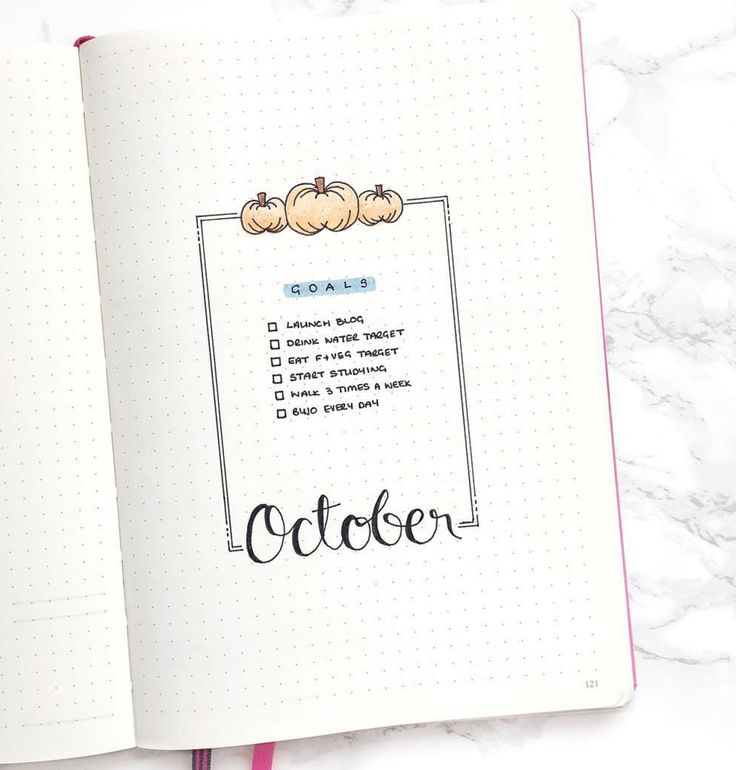 GOALS
LAUNCH BLOG
DRINK WATER TARGET
EAT F+VEG TARGET
START STUDYING
WALK 3 TIMES A WEEK
BUJO EVERY DAY
October
121